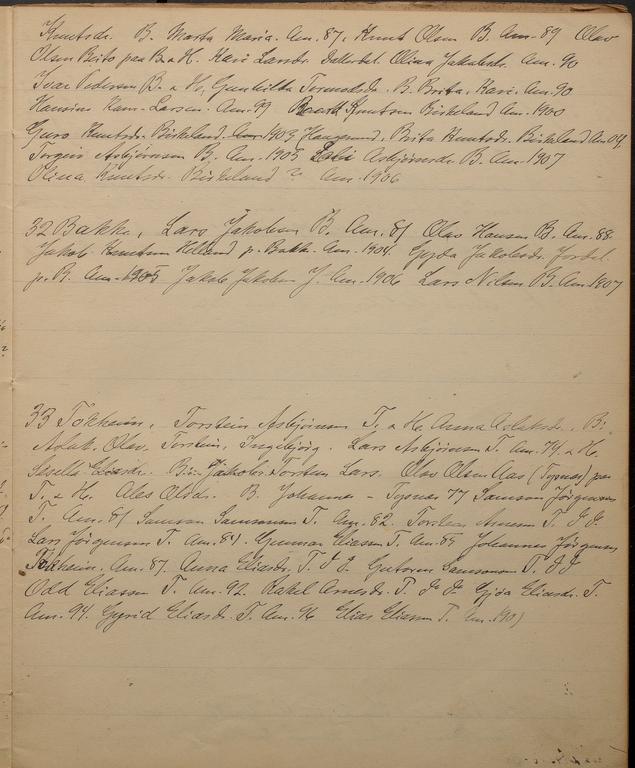 Knutsdr. B. Marta Maria. Am. 87, Knut Olsen B. Am. 89 Olav
Olsen Breto paa B & H. Kari Larsdr. Olina Jakobsdr. Am. 90
Ivar Pedersen B. & H, Gunhilda Tormodsdr. B. Brita, Kari. Am. 90
Hansine Kam. Larsen. Am. 99 Knutsen Birkeland Am. 1900
Guro Knutsdr. Birkeland Am. 1903 Haugesund, Brita Knutsdr. Birkeland Am 04,
Torgeir Asbjörnsen B. Am. 1905 Asbjörnsdr. B. Am. 1907
Olina Knutsdr. Birkeland Am. 1906
32 Bakke, Lars Jakobsen B. Am. 81 Olav Hansen B. Am. 88.
Jakob Knutsen Helland p. Bakk. Am. 1904. Gyda Jakobsdr.
p. B. Am. 1905 Jakob Jakobsen J. Am. 1906 Lars Nilsen B. Am. 1907
33 Tokheim, Torstein Asbjörnsen T. & H. Anna Aslaksdr. B:
Aslak, Olav, Torstein, Ingebjörg. Lars Asbjörnsen T. Am. 74 & H.
Sisella B: Jakob Torsten Lars. Olav Olsen Aas (Tysnes) paa
T. & H. Ales B. Johannes - Tysnes 77 Samson Jörgensen
T. Am. 81 Samson Samsonsen T. Am. 82. Torstein Arnesen T.
Lars Jörgensen T. Am. 84. Gunnar Eliassen T. Am. 85 Johannes Jörgensen
Tokheim. Am. 87. Anna Eliasdr. T. Guttorm Samsonsen T.
Odd Eliassen T. Am. 92. Rakel Arnesdr. T. Gjöa Eliasdr. T.
Am. 94. Gyrid Eliasdr. T. Am. 96 Elias Eliassen T. Am. 1901